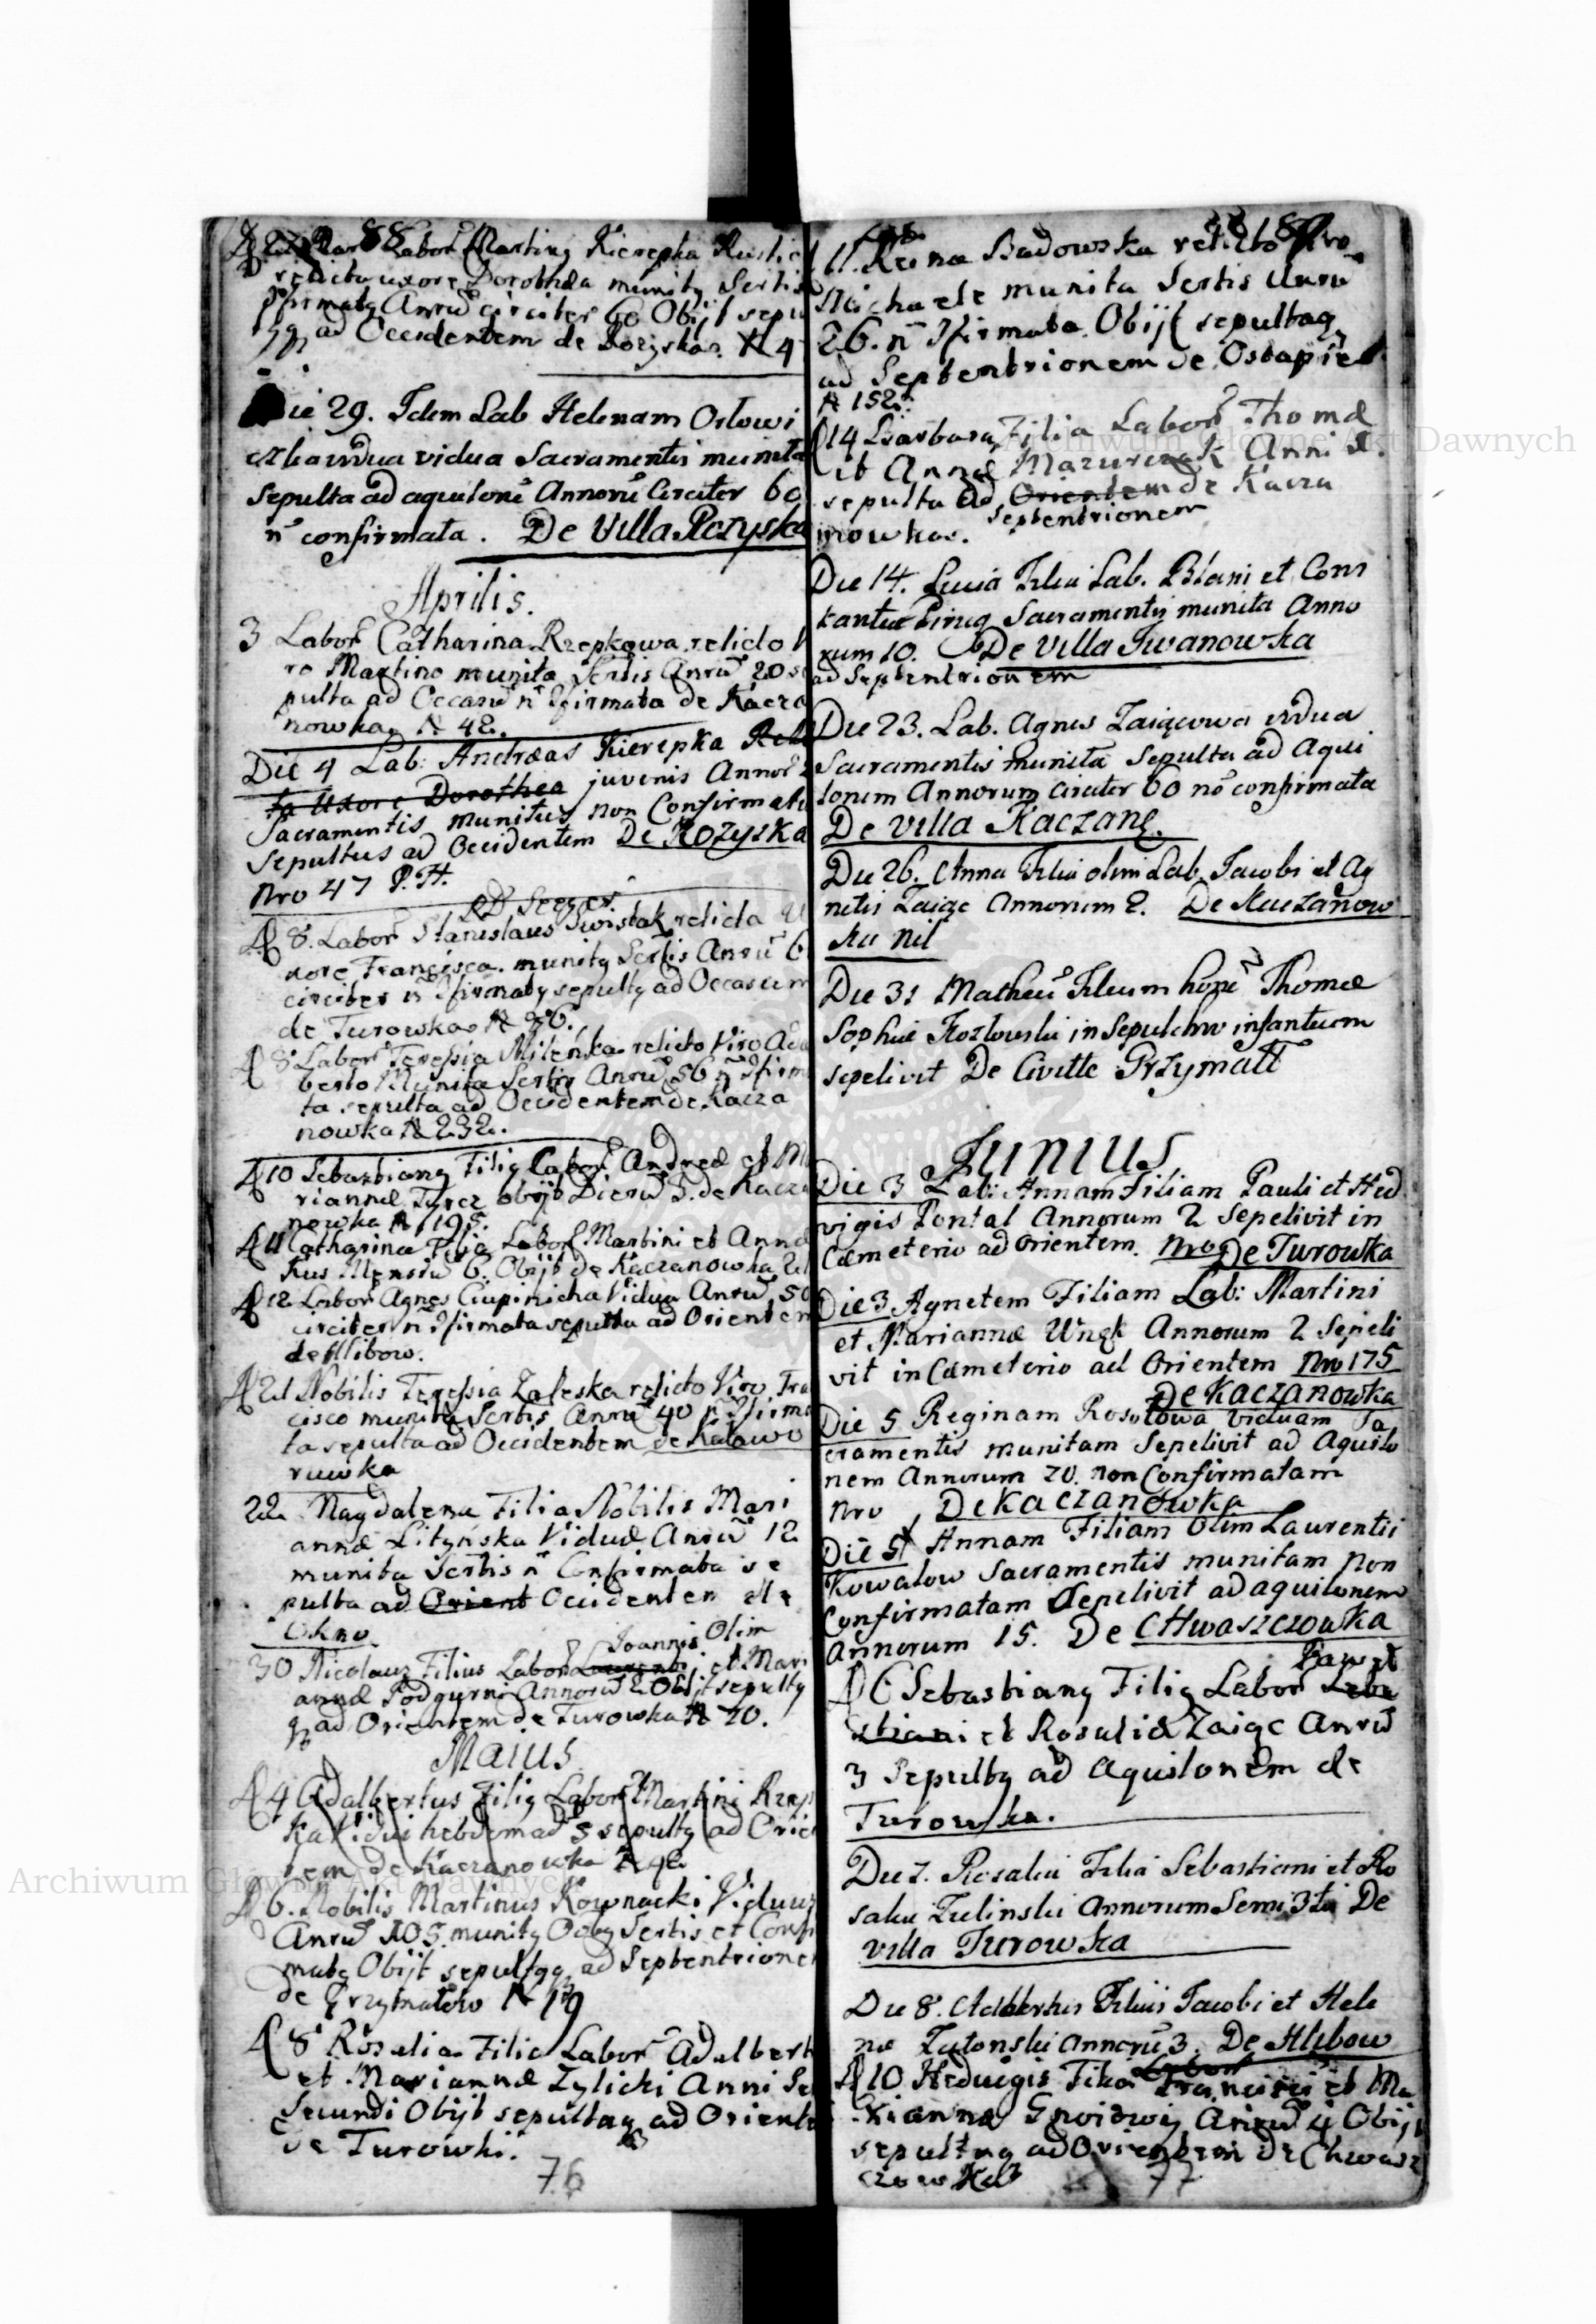 88
Labor Martinus Kierepka Rustic
relicta uxore Dorothea munity Sertis
firmaty Anrū circiter 60 Obijt sepu
ad Occidentem de Rozyska N 4
Die 29. Idem Lab Helenam Orłowi
vidua Sacramentis munita
Sepulta ad aquilonē Annorū Circiter 60
n confirmata. De Villa Rozyska
Aprilis.
3 Labor Catharina Rzepkowa relicto V
ro Martino munita Sertis Anrū 20 se
pulta ad Occasū n firmata de Kacza
nowka N 42.
Die 4 Lab: Andræas Kierepka Reli
ta Uxore Dorothea juvenis Annor
Sacramentis munitus non Confirmatu
Sepultus ad Occidentem De Rozyska
Nro 47 P. H.
8. Labor Stanislaus Swistak relicta U
xore Francisca munity Sertis Anrū 6
circiter n firmaty sepulty ad Occasum
de Turowka N 96.
8 Labor Teressia Mileńka relicto Viro Ada
berto Munita Sertis Anrū 56 n firm
ta sepulta ad Occidentem de Kacza
nowka N 232.
10 Sebastiany Filiy Labor Andreæ et M
riannæ Turcz obijt Dierū 5. de Kacza
nowka N 195.
11 Catharina Filia Labor Martini et Annæ
Kus Mensiū 6. Obijt de Kaczanowka
12 Labor Agnes Ciupinicha Vidua Anrū 50
circiter n firmata sepulta ad Orientem
de Hlibow.
21 Nobilis Teressia Zaleska relicto Viro Fra
cisco munita Sertis Anrū 40 n firma
ta sepulta ad Occidentem de Kaławo
ruwka
22 Magdalena Filia Nobilis Mari
annæ Lityńska Viduæ Anrū 12
munita Sertis n Confirmata se
pulta ad Orient Occidentem de
Okno
Joannis Olim
30 Nicolaus Filius Labor Laurenti et Mari
annæ Podgurni Annorū 2 Obijt sepulty
q ad Orientem de Turowka N 20.
Maius
4 Adalbertus Filiy Labor Martini Rzep
ka Vidui hebdemad 5 sepulty ad Orien
tem de Kaczanowka N 42
6. Nobilis Martinus Kownacki Viduus
Anrū 105 munity Oōby Sertis et Conf
maty Obijt sepultqq ad Septentrionem
de Grzymałow N 19
8 Rosalia Filia Labor Adalberti
et Mariannæ Zylicki Anni Se
secundi Obijt sepultaq ad Oriente
de Turowki.
76
89
11. Badowska relicto Viro
Michaele munita Sertis Anrū
26. n firmata Obijt sepultaq
ad Septentrionem de Ostapie
N 152.
14 Barbara Filia Labor Thomæ
et Annæ Mazurczak Anni
sepulta ad Orientem de Kacza
septentrionem
nowka.
Die 14. Lucia Filia Lab. Blasi et Cons
tantia Pirug Sacramentis munita Anno
rum 10. De Villa Iwanowka
ad Septentrionem
Die 23. Lab. Agnes Zaiącowa vidua
Sacramentis munita Sepulta ad Aqui
lonem Annorum Circiter 60 nō confirmata
De Villa Kaczano.
Die 26. Anna Filia olim Lab. Jacobi et Ag
netis Zaiąc Annorum 2. De Kaczanow
ka nil
Die 31 Matheū Filium Thomæ
Sophiæ Kozłowski in Sepulchro infantium
sepelivit De Civitte Grzymałł
JUNIUS
Die 3 Lab: Annam Filiam Pauli et Hed
vigis Pontal Annorum 2 Sepelivit in
Cæmeterio ad Orientem. Nro De Turowka
Die 3 Agnetem Filiam Lab: Martini
et Mariannæ Wnęk Annorum 2 Sepeli
vit in Cæmeterio ad Orientem Nro 175
De Kaczanowka
Die 5 Reginam Rosołowa viduam Sa
cramentis munitam Sepelivit ad Aquilo
nem Annorum 70. non Confirmatam
Nro, De Kaczanowka
Die 5 Annam Filiam Olim Laurentii
Kowalow Sacramentis munitam non
Confirmatam Sepelivit ad aquilonem
Annorum 15. De CHwaszczowka
6 Sebastiany Filiy Labor Seba
stiani et Rosaliæ Zaiąc Anrū
3 Sepulty ad Aquilonem de
Turowka.
Die 7. Rosalia Filia Sebastiani et Ro
salia Zielinski Annorum Semi 3tii De
villa Turowka
Die 8. Adalbertus Filius Jacobi et Hele
næ Zytonski Annorū 3. De Hlibow
Labor
10 Heduigis Filia Francisci et Ma
riannæ Gwizdwij Anrū 4 Obijt
sepultaq ad Orientem de Chwasz
czowka
77
Archiwum Główne Akt Dawnych
Archiwum Główne Akt Dawnych